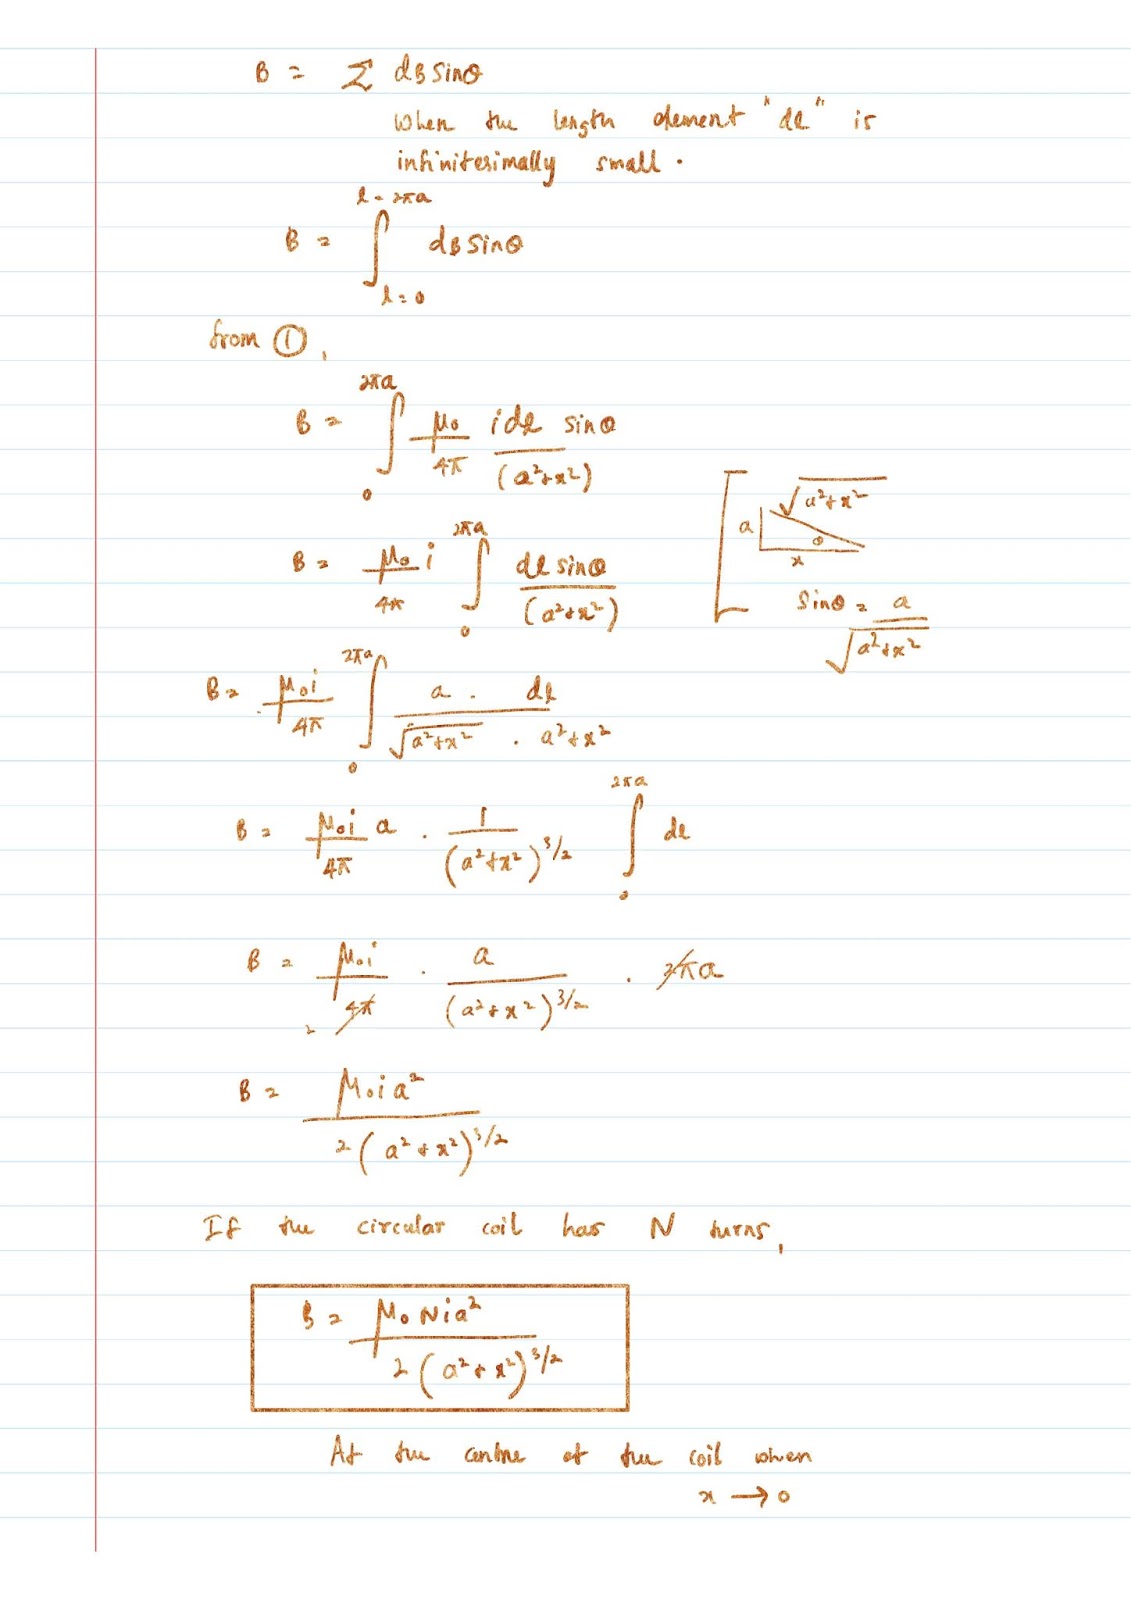 B = Σ dB sinθ
when the length element "dl" is
infinitesimally small.
l = 2πa
B = ∫ dB sinθ
l = 0
from ①,
2πa
B = ∫ μ₀/4π i dl sinθ/(a²+x²)
0
√a²+x²
a
θ
x
sinθ = a/√a²+x²
2πa
B = μ₀/4π i ∫ dl sinθ/(a²+x²)
0
2πa
B = μ₀i/4π ∫ a . dl/√a²+x² . a²+x²
0
2πa
B = μ₀i/4π a . 1/(a²+x²)^3/2 ∫ dl
0
B = μ₀i/4π . a/(a²+x²)^3/2 . 2πa
2
B = μ₀ia²/2(a²+x²)^3/2
If the circular coil has N turns,
B = μ₀Nia²/2(a²+x²)^3/2
At the centre of the coil when
x → 0